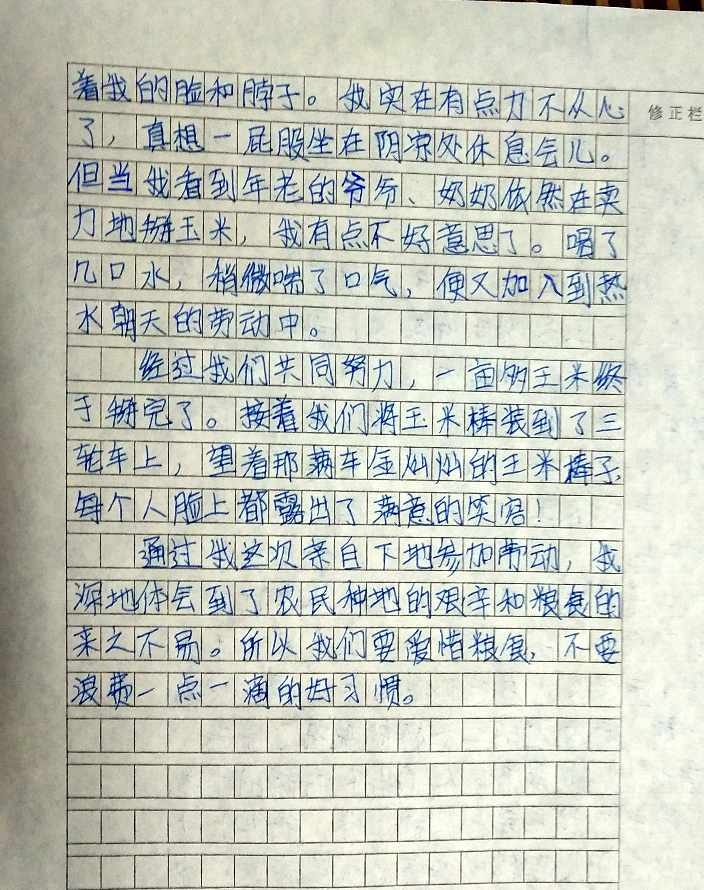 着我的脸和脖子。我实在有点力不从心
修正栏
了，真想一屁股坐在阴凉处休息会儿。
但当我看到年老的爷爷、奶奶依然在卖
力地掰玉米，我有点不好意思了。喝了
几口水，稍微喘了口气，便又加入到热
火朝天的劳动中。
经过我们共同努力，一亩的玉米终
于掰完了。接着我们将玉米棒装到了三
轮车上，望着那满车金灿灿的玉米棒子，
每个人脸上都露出了满意的笑容！
通过我这次亲自下地参加劳动，我
深地体会到了农民种地的艰辛和粮食的
来之不易。所以我们要爱惜粮食，不要
浪费一点一滴的好习惯。